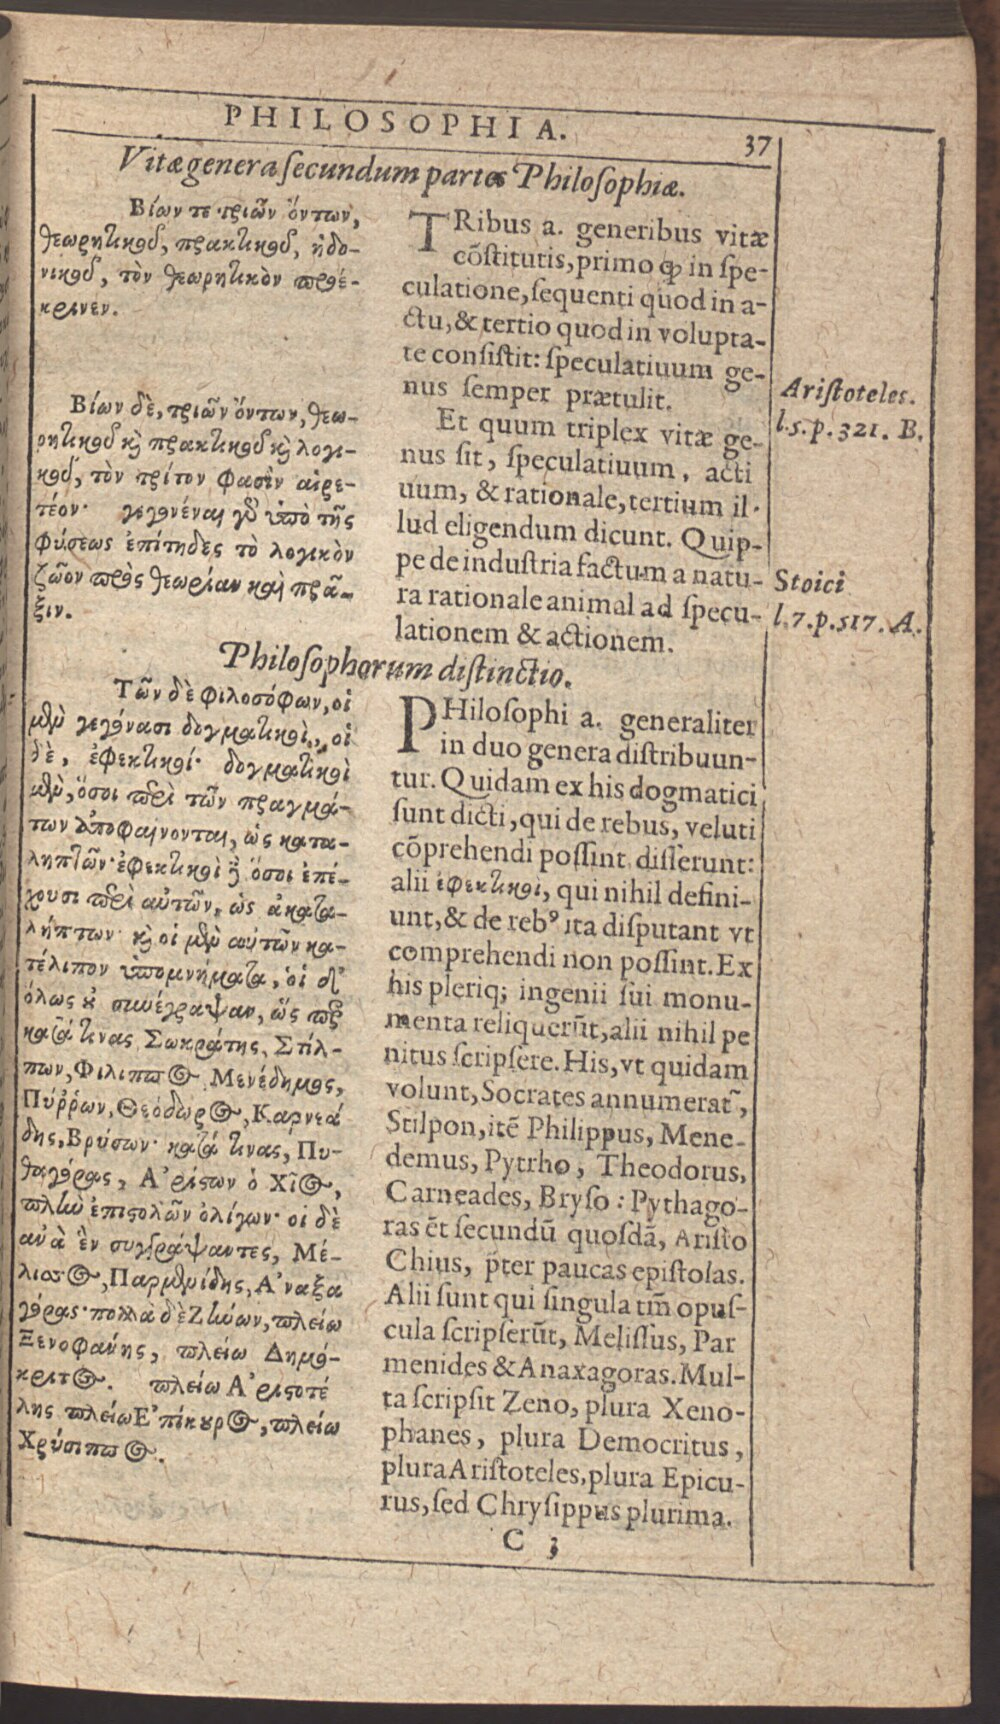 PHILOSOPHIA.
37
Vitæ genera secundum partes Philosophiæ.
Βίων τε τριῶν ὄντων,
θεωρητικοῦ, πρακτικοῦ, ἡδο-
νικοῦ, τὸν θεωρητικὸν προέ-
κρινεν.
Βίων δὲ, τριῶν ὄντων, θεω-
ρητικοῦ καὶ πρακτικοῦ καὶ λογι-
κοῦ, τὸν τρίτον φασὶν αἱρε-
τέον· γεγονέναι γὸ ὑπὸ τῆς
φύσεως ἐπίτηδες τὸ λογικὸν
ζῶον πρὸς θεωρίαν καὶ πρᾶ-
ξιν.
TRibus a. generibus vitæ
cõstitutis, primo ꝙ in spe-
culatione, sequenti quod in a-
ctu, & tertio quod in volupta-
te consistit: speculatiuum ge-
nus semper prætulit.
Et quum triplex vitæ ge-
nus sit, speculatiuum, acti
uum, & rationale, tertium il-
lud eligendum dicunt. Quip-
pe de industria factum a natu-
ra rationale animal ad specu-
lationem & actionem.
Aristoteles.
l.5.p.321. B.
Stoici
l.7.p.517. A.
Philosophorum distinctio.
Τῶν δὲ φιλοσόφων, οἱ
μὲν γεγόνασι δογματικοὶ, οἱ
δὲ, ἐφεκτικοί· δογματικοὶ
μὲν, ὅσοι περὶ τῶν πραγμά-
των ἀποφαίνονται, ὡς κατα-
ληπτῶν· ἐφεκτικοὶ δὲ ὅσοι ἐπέ-
χουσι περὶ αὐτῶν, ὡς ἀκατα-
λήπτων· καὶ οἱ μὲν αὐτῶν κα-
τέλιπον ὑπομνήματα, οἱ δ'
ὅλως οὐ συνέγραψαν, ὥς περ
κατά τινας Σωκράτης, Στίλ-
πων, Φίλιππος, Μενέδημος,
Πύῤῥων, Θεόδωρος, Καρνεά
δης, Βρύσων· κατά τινας, Πυ-
θαγόρας, Ἀρίστων ὁ Χῖος,
πλὴν ἐπιστολῶν ὀλίγων· οἱ δὲ
ἀνὰ ἓν συγγράψαντες, Μέ-
λισσος, Παρμενίδης, Ἀναξα
γόρας· πολλὰ δὲ Ζήνων, πλείω
Ξενοφάνης, πλείω Δημό-
κριτος. πλείω Ἀριστοτέ
λης πλείω Ἐπίκουρος, πλείω
Χρύσιππος.
PHilosophi a. generaliter
in duo genera distribuun-
tur. Quidam ex his dogmatici
sunt dicti, qui de rebus, veluti
cõprehendi possint disserunt:
alii ἐφεκτικοὶ, qui nihil defini-
unt, & de rebꝰ ita disputant vt
comprehendi non possint. Ex
his pleriq; ingenii sui monu-
menta reliquerũt, alii nihil pe
nitus scripsere. His, vt quidam
volunt, Socrates annumerat˜,
Stilpon, itẽ Philippus, Mene-
demus, Pyrrho, Theodorus,
Carneades, Bryso: Pythago-
ras ẽt secundũ quosdã, Aristo
Chius, p̃ter paucas epistolas.
Alii sunt qui singula tm̃ opus-
cula scripserũt, Melissus, Par
menides & Anaxagoras. Mul-
ta scripsit Zeno, plura Xeno-
phanes, plura Democritus,
plura Aristoteles, plura Epicu-
rus, sed Chrysippus plurima.
C 3